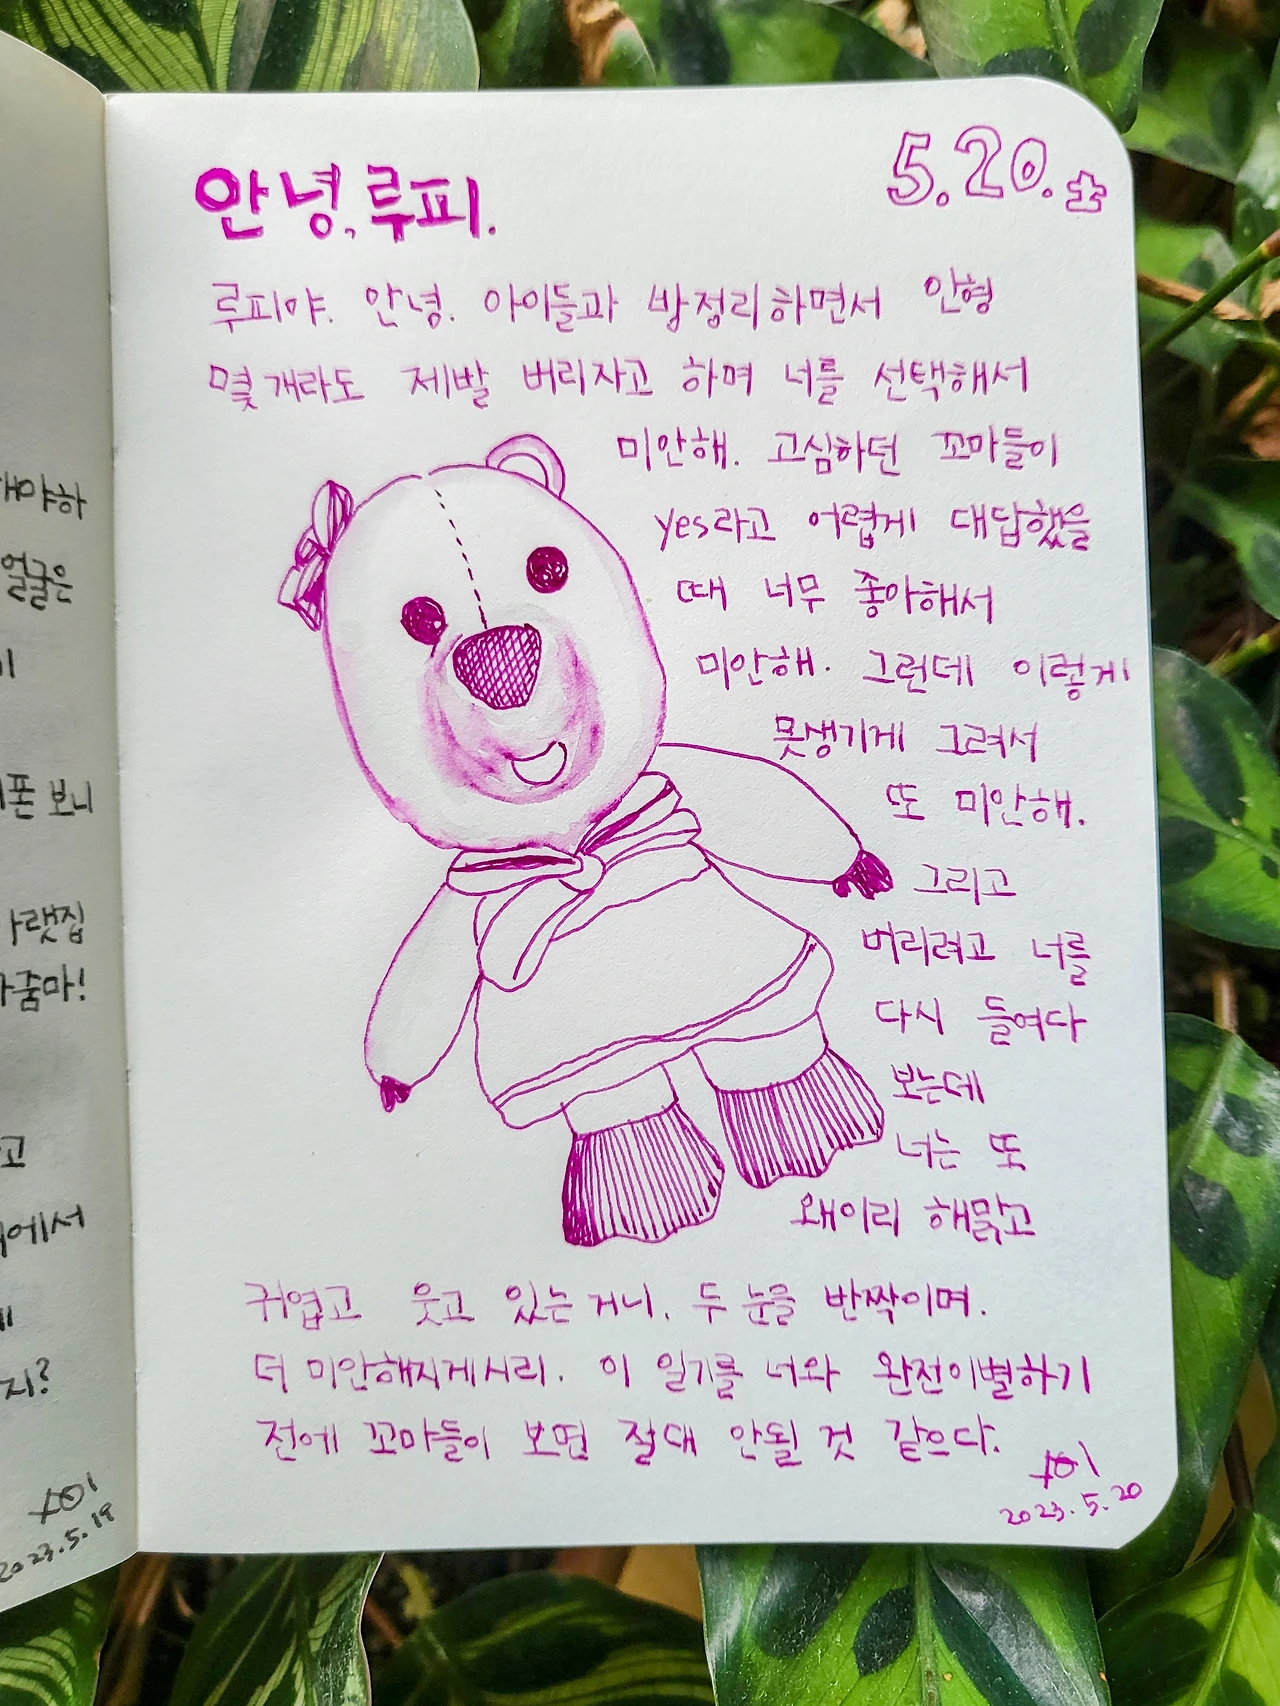 안녕, 루피.
5.20.
루피야. 안녕. 아이들과 방정리하면서 인형
몇개라도 제발 버리자고 하며 너를 선택해서
미안해. 고심하던 꼬마들이
yes라고 어렵게 대답했을
때 너무 좋아해서
미안해. 그런데 이렇게
못생기게 그려서
또 미안해.
그리고
버리려고 너를
다시 들여다
보는데
너는 또
왜이리 해맑고
귀엽고 웃고 있는거니. 두 눈을 반짝이며.
더 미안해지게시리. 이 일기를 너와 완전이별하기
전에 꼬마들이 보면 절대 안될 것 같으다.
2023.5.20
얼굴은
폰 보니
랫집
줌마!
고
에서
지?
2023.5.19